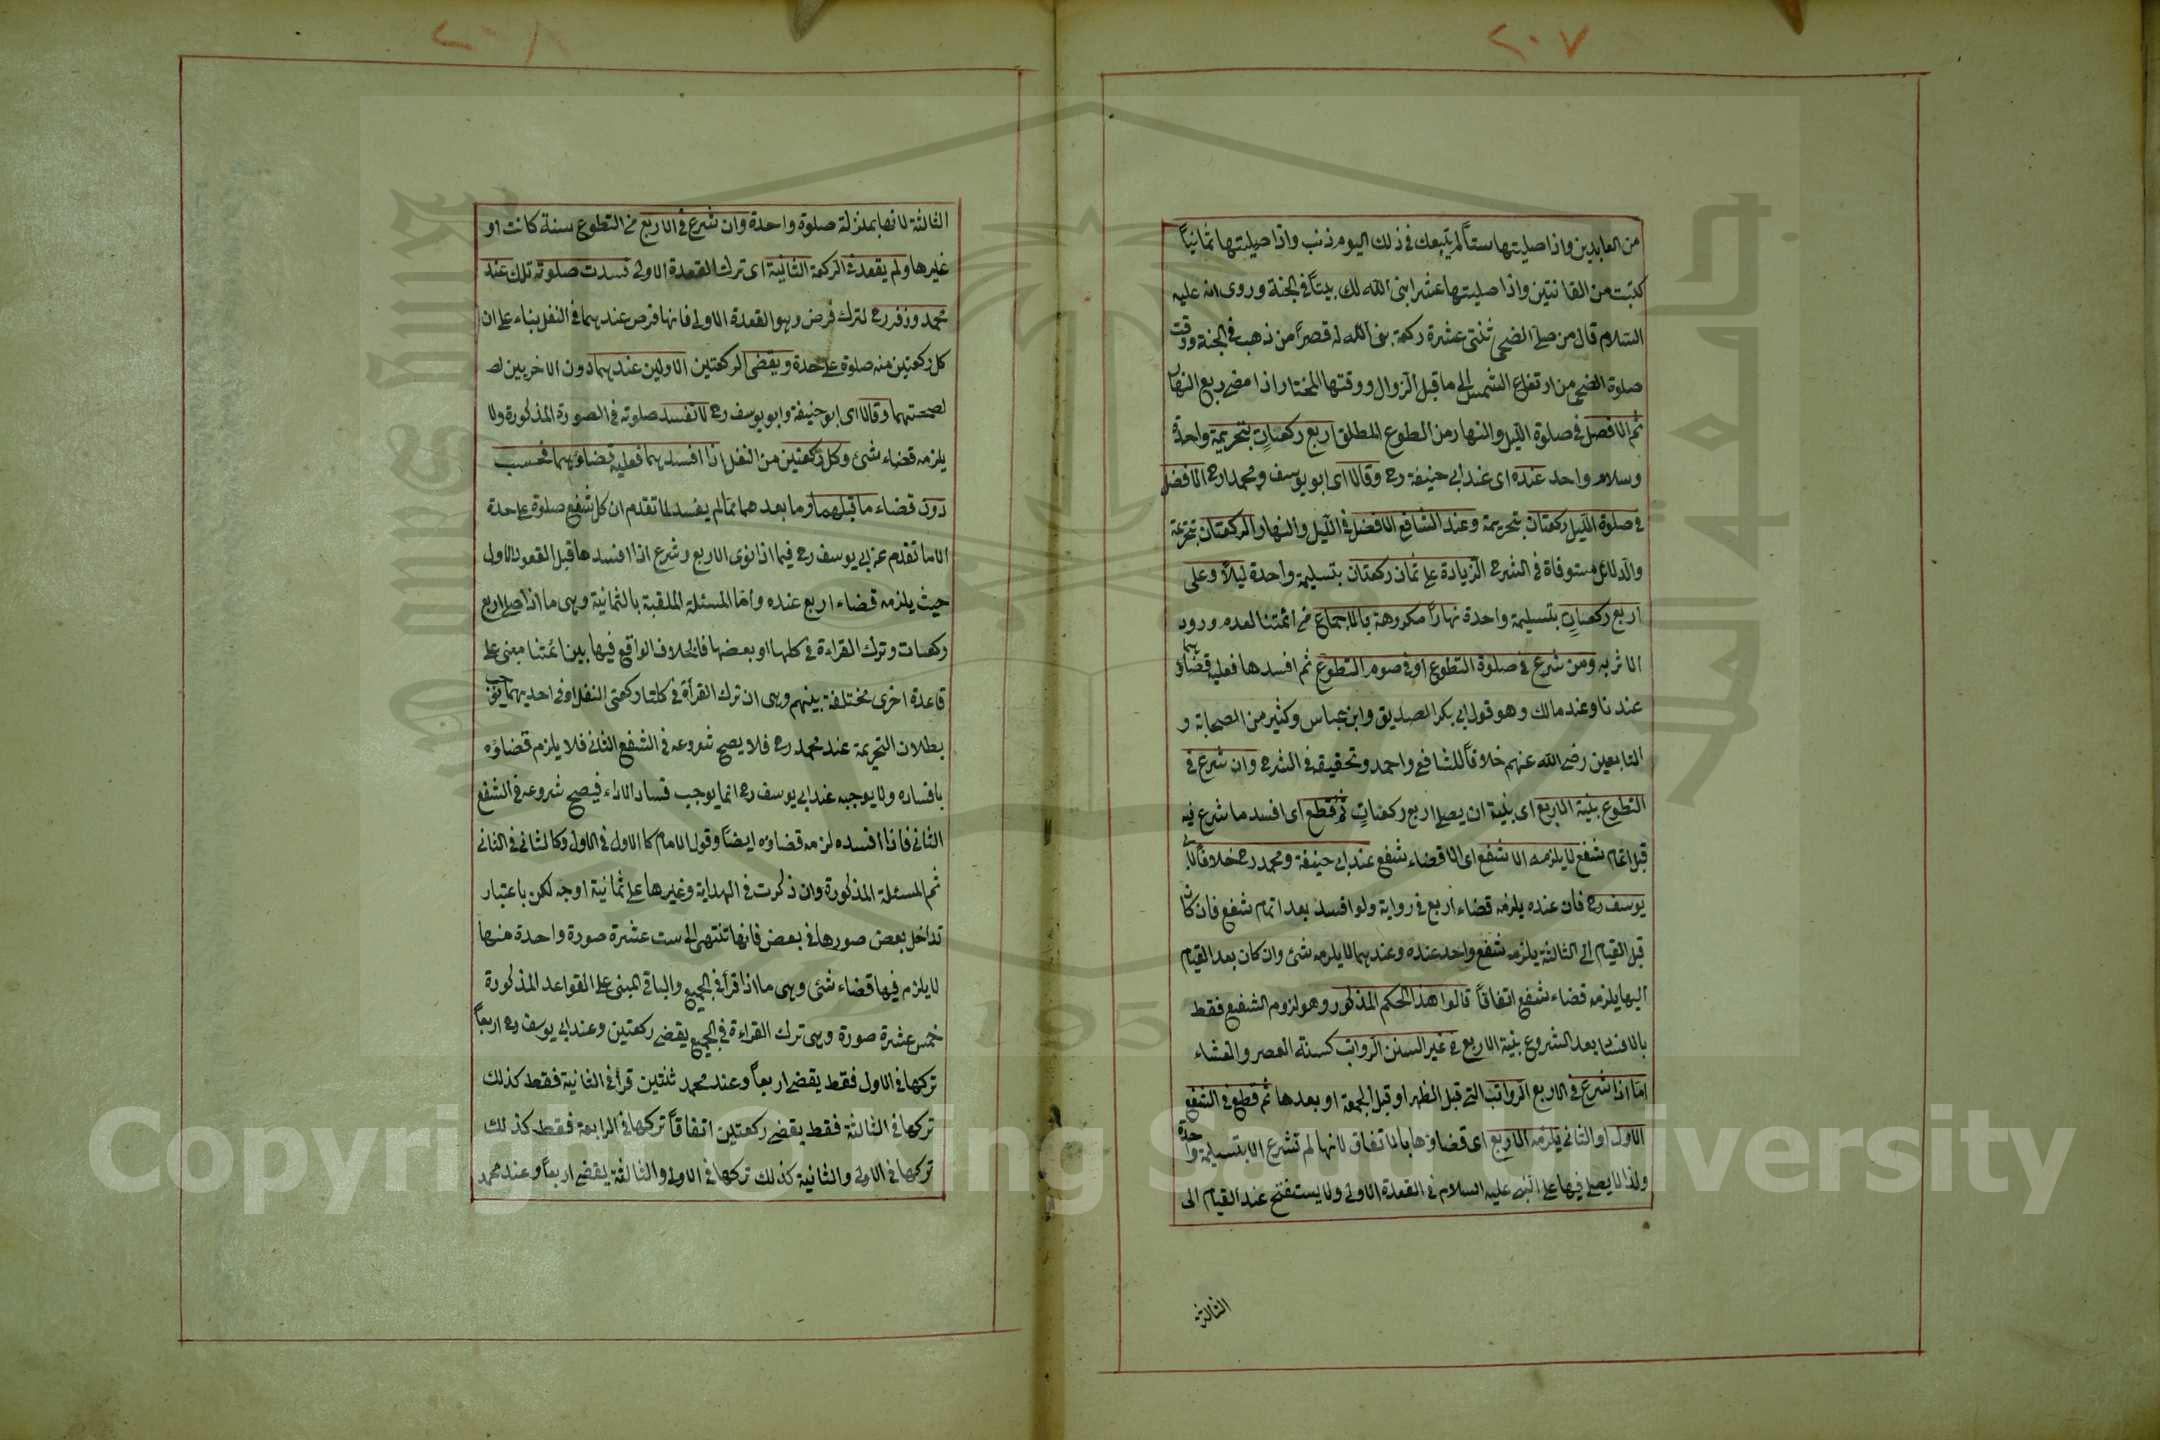 ٢٠٧
من العابدين واذا صليتها ستاً لم يتبعك في ذلك اليوم ذنب واذا صليتها ثمانياً
كتبت من القانتين واذا صليتها عشرا بنى الله لك بيتاً في الجنة وروى انه عليه
السلام قال من صلى الضحى ثنتى عشرة ركعة بنى الله له قصراً من ذهب في الجنة ووقت
صلوة الضحى من ارتفاع الشمس الى ما قبل الزوال ووقتها المختار اذا مضى ربع النهار
ثم الافضل في صلوة الليل والنهار من التطوع المطلق اربع ركعاتٍ بتحريمة واحدة
وسلام واحد عنده اى عند ابي حنيفة رح وقالا اى ابو يوسف ومحمد رح الافضل
في صلوة الليل ركعتان بتحريمة وعند الشافع الافضل في الليل والنهار الركعتان بتحريمة
والدلائل مستوفاة في الشرح الزيادة على ثمان ركعتان بتسليمة واحدة ليلاً وعلى
اربع ركعاتٍ بتسليمة واحدة نهاراً مكروهة بالاجماع من ائمتنا لعدم ورود
الاثر به ومن شرع في صلوة التطوع او في صوم التطوع ثم افسدها فعليه قضاؤهما
عندنا وعند مالك وهو قول ابي بكر الصديق وابن عباس وكثير من الصحابة و
التابعين رضى الله عنهم خلافاً للشافع واحمد وتحقيقه في الشرح وان شرع في
التطوع بنية الاربع اى بنية ان يصلى اربع ركعاتٍ ثم قطع اى افسد ما شرع فيه
قبل اتمام شفع لا يلزمه الا شفع اى الا قضاء شفع عند ابي حنيفة ومحمد رح خلافاً لابي
يوسف رح فان عنده يلزمه قضاء اربع في رواية ولو افسد بعد اتمام شفع فان كان
قبل القيام الى الثالثة يلزمه شفع واحد عنده وعندهما لا يلزمه شئ وان كان بعد القيام
اليها يلزمه قضاء شفع اتفاقاً قالوا هذا الحكم المذكور وهو لزوم الشفع فقط
بالافساد بعد الشروع بنية الاربع في غير السنن الرواتب كسنة العصر والعشاء
اما اذا شرع في الاربع الرواتب التي قبل الظهر او قبل الجمعة او بعدها ثم قطع في الشفع
الاول او الثاني يلزمه الاربع اى قضاؤها بالاتفاق لانها لم تشرع الا بتسليمة واحدة
ولذا لا يصلى فيها على النبي عليه السلام في القعدة الاولى ولا يستفتح عند القيام الى
الثالثة
٢٠٨
الثالثة لانها بمنزلة صلوة واحدة وان شرع في الاربع من التطوع سنة كانت او
غيرها ولم يقعد في الركعة الثانية اى ترك القعدة الاولى فسدت صلوته تلك عند
محمد وزفر رح لترك فرض وهو القعدة الاولى فانها فرض عندهما في النفل بناء على ان
كل ركعتين منه صلوة على حدة ويقضى الركعتين الاوليين عندهما دون الاخريين لص
لصحتهما وقالا اى ابو حنيفة وابو يوسف رح لا تفسد صلوته في الصورة المذكورة ولا
يلزمه قضاء شئ وكل ركعتين من النفل اذا افسدهما فعليه قضاؤهما فحسب
دون قضاء ما قبلهما وما بعدهما مما لم يفسد لما تقدم ان كل شفع صلوة على حدة
الا ما تقدم عن ابي يوسف رح فيما اذا نوى الاربع وشرع اذا افسدها قبل القعود الاول
حيث يلزمه قضاء اربع عنده واما المسئلة الملقبة بالثمانية وهى ما اذا صلى اربع
ركعات وترك القراءة في كلها او بعضها فالخلاف الواقع فيها بين ائمتنا مبنى على
قاعدة اخرى مختلفة بينهم وهى ان ترك القرأة في كلتا ركعتى النفل او في احديهما يوجب
بطلان التحريمة عند محمد رح فلا يصح شروعه في الشفع الثاني فلا يلزم قضاؤه
بافساده ولا يوجبه عند ابي يوسف رح انما يوجب فساد الاداء فيصح شروعه في الشفع
الثاني فاذا افسده لزمه قضاؤه ايضاً وقول الامام كالاول في الاول وكالثاني في الثاني
ثم المسئلة المذكورة وان ذكرت في الهداية وغيرها على ثمانية اوجه لكن باعتبار
تداخل بعض صورها في بعض فانها تنتهى الى ست عشرة صورة واحدة منها
لا يلزم فيها قضاء شئ وهى ما اذا قرأ في الجميع والباقى المبنى على القواعد المذكورة
خمس عشرة صورة وهى ترك القراءة في الجميع يقضى ركعتين وعند ابي يوسف رح اربعاً
تركها في الاول فقط يقضى اربعاً وعند محمد ثنتين قرأ في الثانية فقط كذلك
تركها في الثالثة فقط يقضى ركعتين اتفاقاً تركها في الرابعة فقط كذلك
تركها في الاولى والثانية كذلك تركها في الاولى والثالثة يقضى اربعاً وعند محمد
Copyright © King Saud University
1957